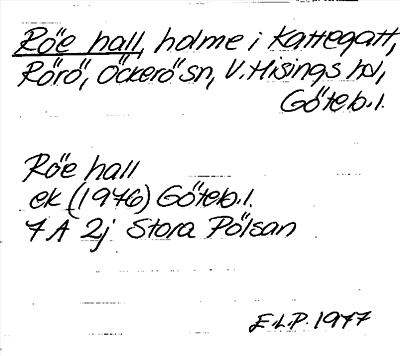 Röe hall, holme i Kattegatt,
Rörö, Öckerö sn, V. Hisings hd,
Göteb. l.
Röe hall
ek (1976) Göteb. l.
7 A 2j Stora Pölsan
E.L.P. 1977